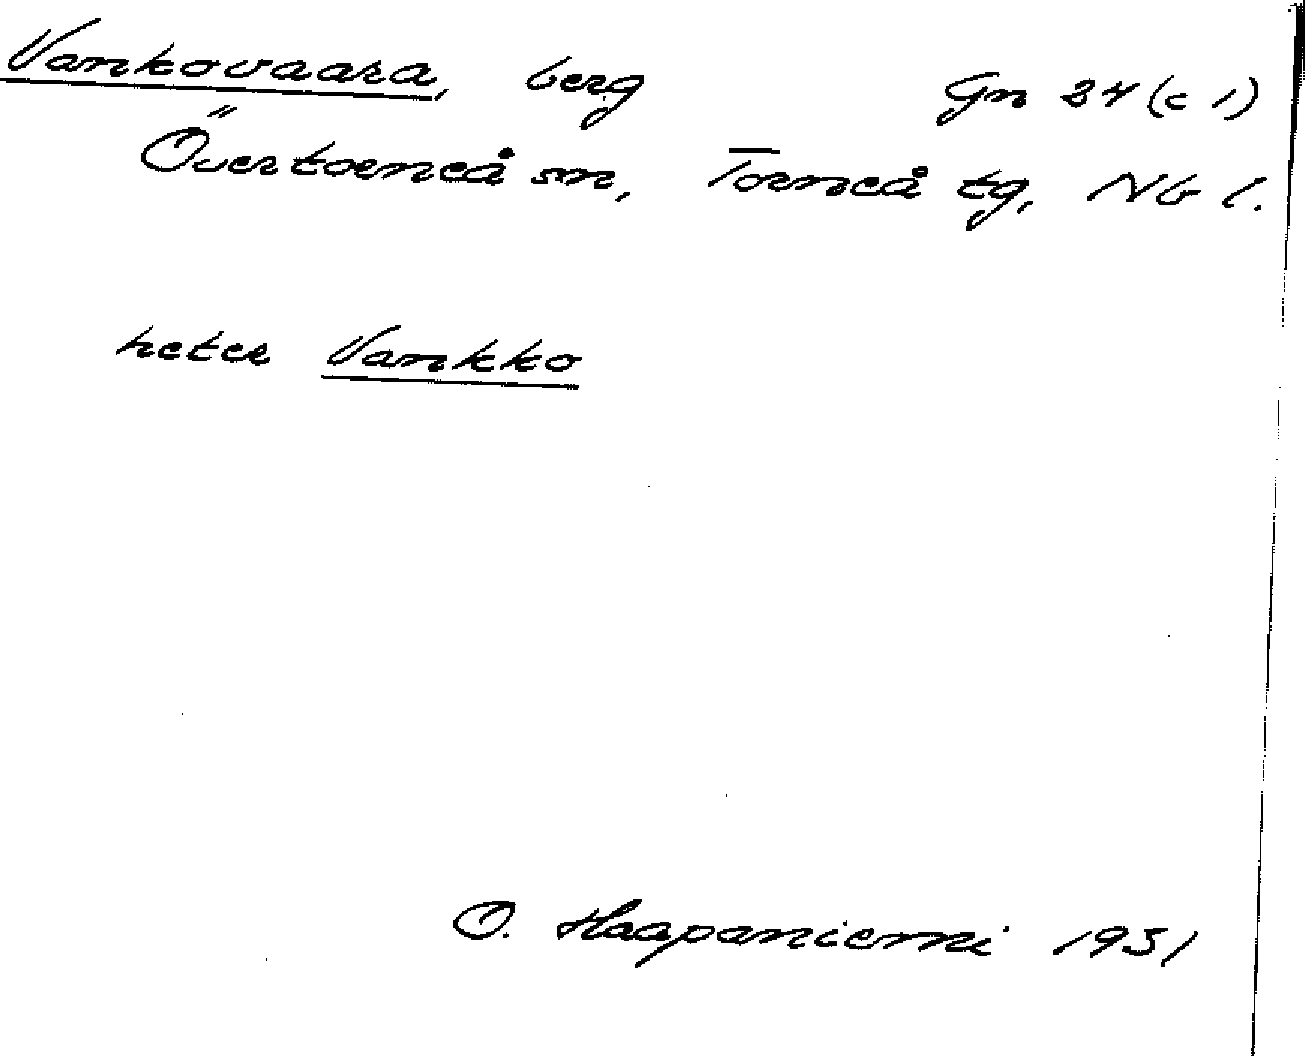 Vankovaara, berg Gn 34 (c 1)
Övertorneå sn, Torneå tg, NB l.
heter Vankko
O. Haapaniemi 1931